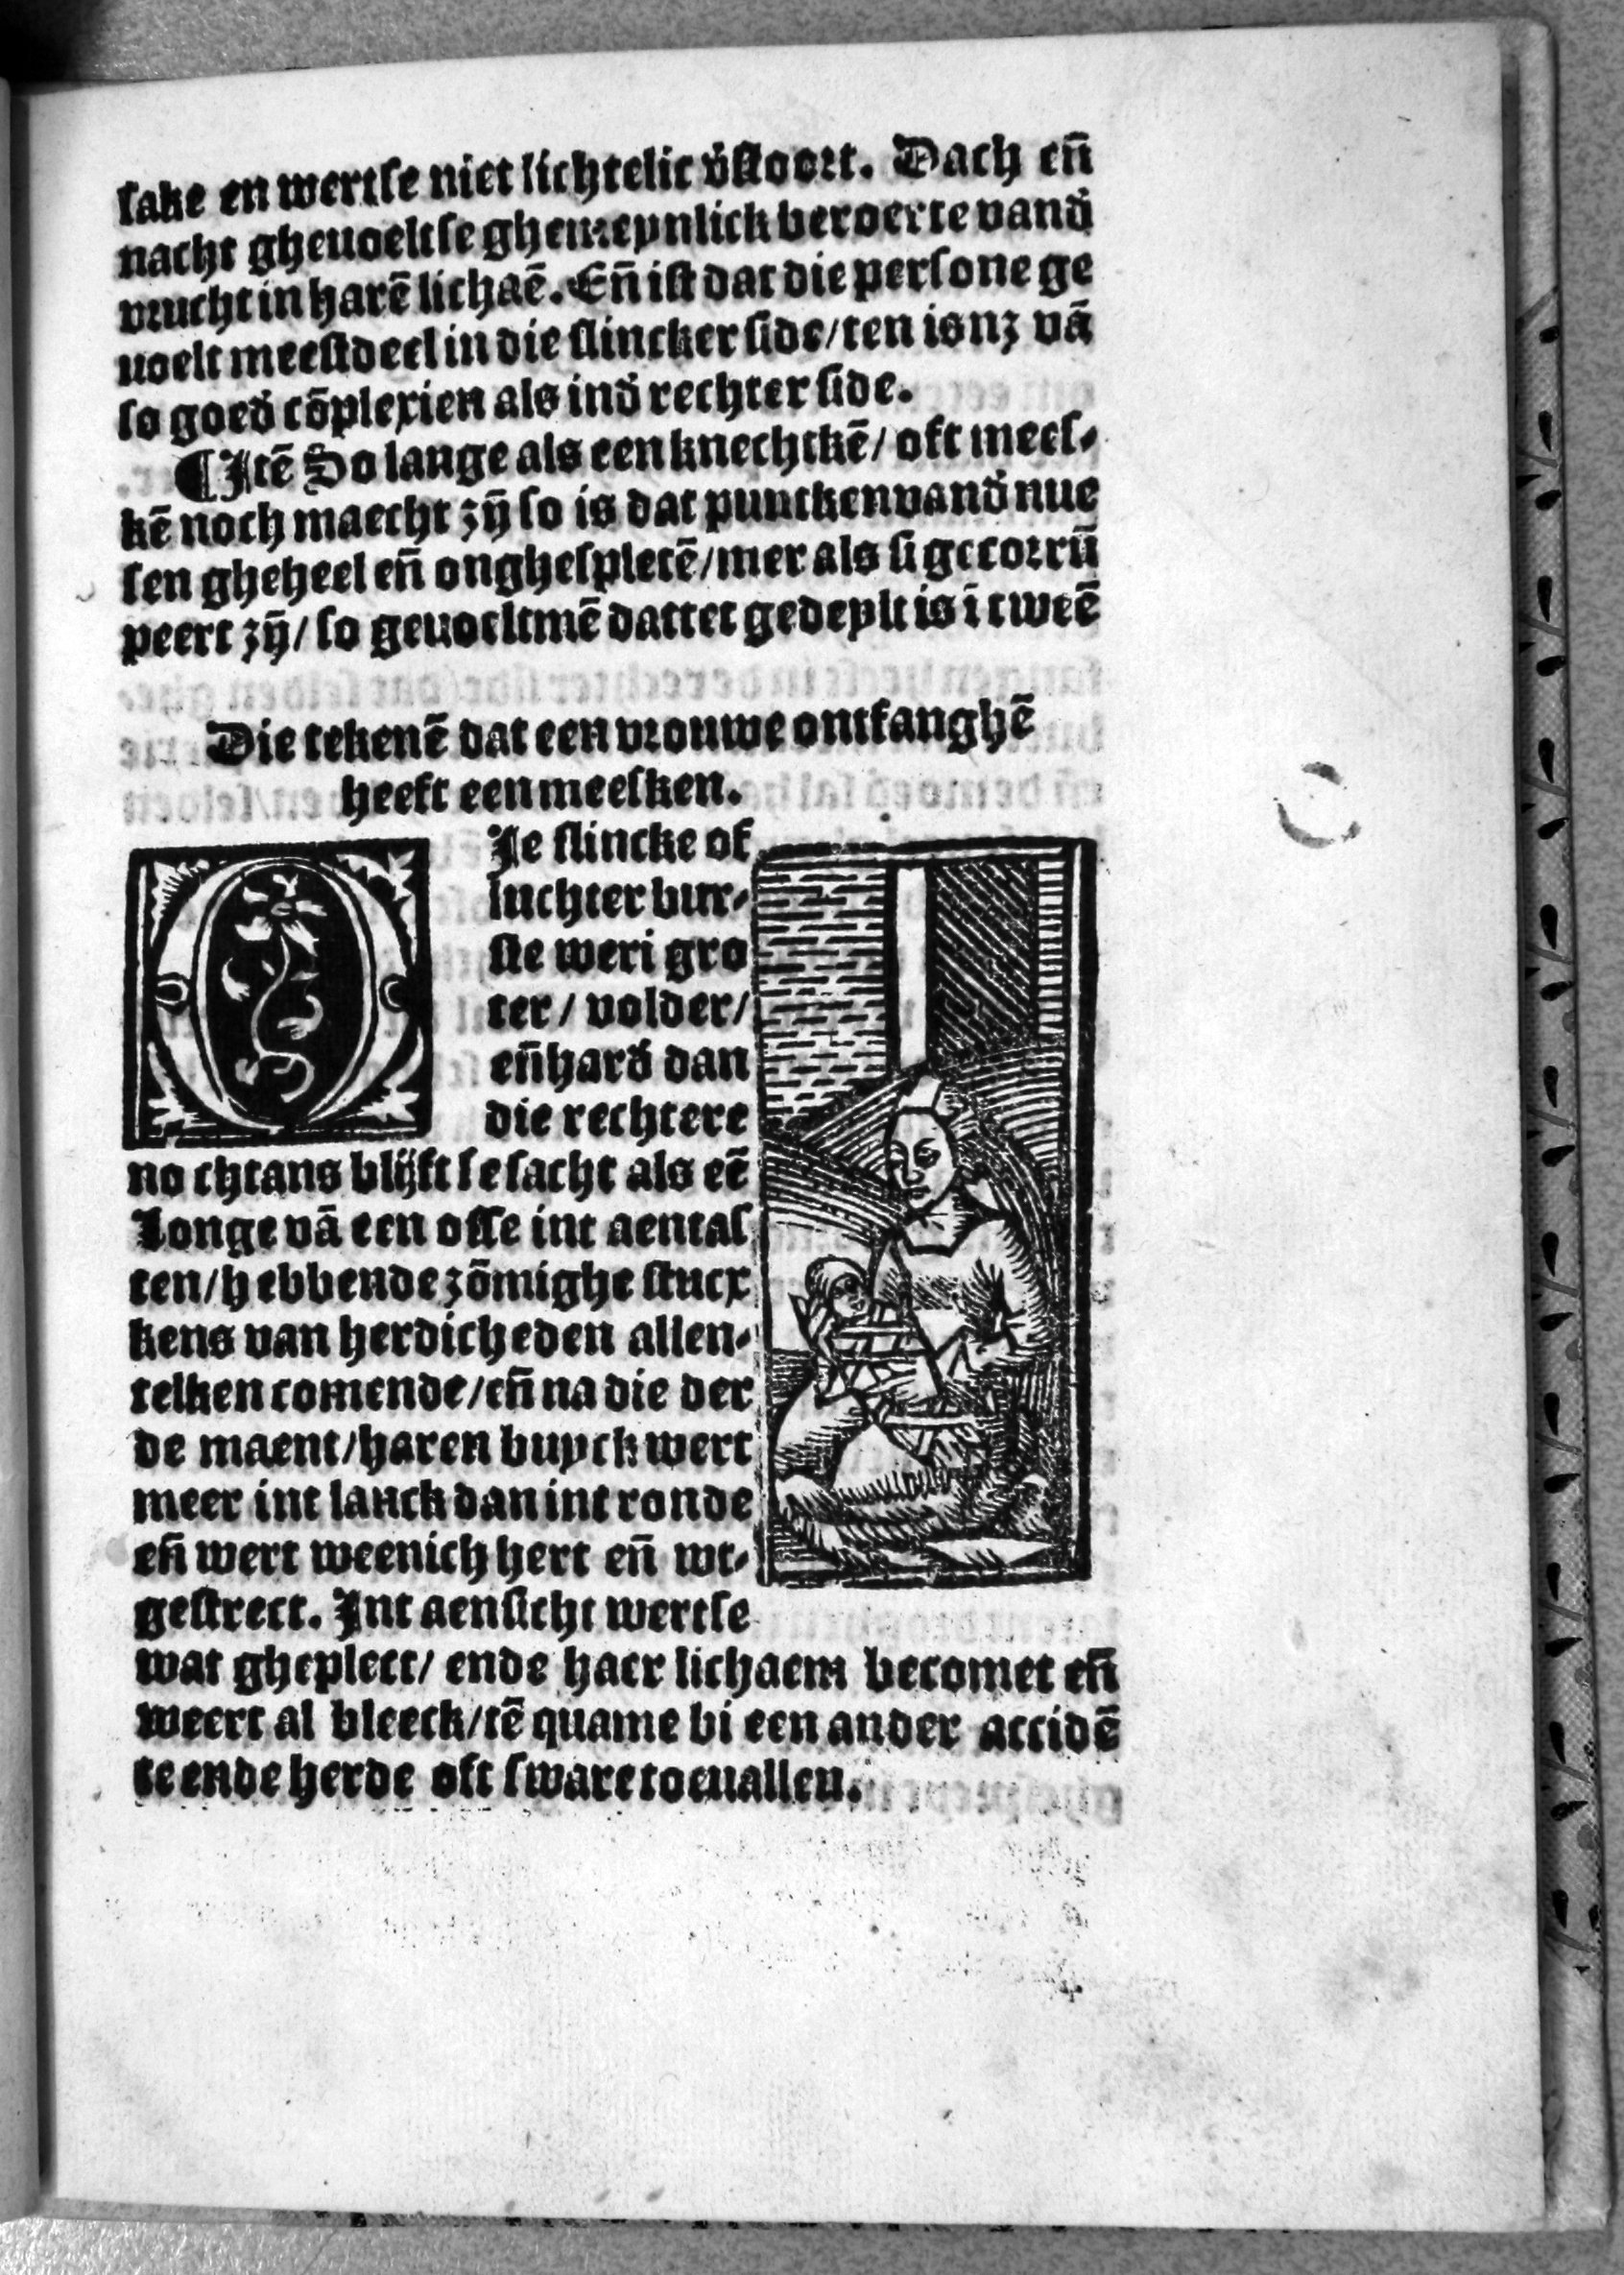 sake en wertse niet lichtelic v̄stoort. Dach en̄
nacht gheuoeltse ghemeynlick beroerte vand̄
vrucht in harē lichaē. En̄ ist dat die persone ge
uoelt meestdeel in die slincker side/ten is nz vā
so goed̄ cōplexien als ind̄ rechter side.
¶Itē So lange als een knechtkē/ oft meeſ⸗
kē noch maecht zȳ so is dat punctken vand̄ nue
sen gheheel en̄ onghespletē/mer als si gecorrū
peert zȳ/ so geuoeltmē dattet gedeylt is ī tweē
Die tekenē dat een vrouwe ontfanghē
heeft een meesken.
Die slincke of
luchter bur⸗
ste wert gro
ter/ volder/
en̄ hard̄ dan
die rechtere
no chtans blijft se sacht als eē
Longe vā een osse int aentas
ten/hebbende zōmighe stucx
kens van herdicheden allen⸗
telken comende/en̄ na die der
de maent/haren buyck wert
meer int lanck dan int ronde
en̄ wert weenich hert en̄ wt⸗
gestrect. Int aensicht wertse
wat gheplect/ ende haer lichaem becomet en̄
weert al bleeck/tē quame bi een ander accidē
te ende herde oft sware toeuallen.